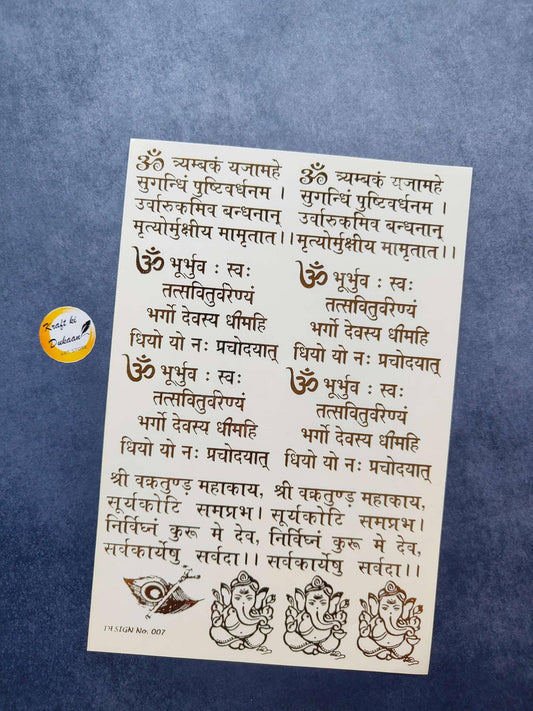 ॐ त्र्यम्बकं यजामहे
सुगन्धिं पुष्टिवर्धनम ।
उर्वारुकमिव बन्धनान्
मृत्योर्मुक्षीय मामृतात।।
ॐ त्र्यम्बकं यजामहे
सुगन्धिं पुष्टिवर्धनम ।
उर्वारुकमिव बन्धनान्
मृत्योर्मुक्षीय मामृतात।।
ॐ भूर्भुव : स्वः
तत्सवितुर्वरेण्यं
भर्गो देवस्य धीमहि
धियो यो नः प्रचोदयात्
ॐ भूर्भुव : स्वः
तत्सवितुर्वरेण्यं
भर्गो देवस्य धीमहि
धियो यो नः प्रचोदयात्
ॐ भूर्भुव : स्वः
तत्सवितुर्वरेण्यं
भर्गो देवस्य धीमहि
धियो यो नः प्रचोदयात्
ॐ भूर्भुव : स्वः
तत्सवितुर्वरेण्यं
भर्गो देवस्य धीमहि
धियो यो नः प्रचोदयात्
श्री वक्रतुण्ड महाकाय,
सूर्यकोटि समप्रभ।
निर्विघ्नं कुरू मे देव,
सर्वकार्येषु सर्वदा।।
श्री वक्रतुण्ड महाकाय,
सूर्यकोटि समप्रभ।
निर्विघ्नं कुरू मे देव,
सर्वकार्येषु सर्वदा।।
DESIGN No: 007
Kraft ki
Dukaan